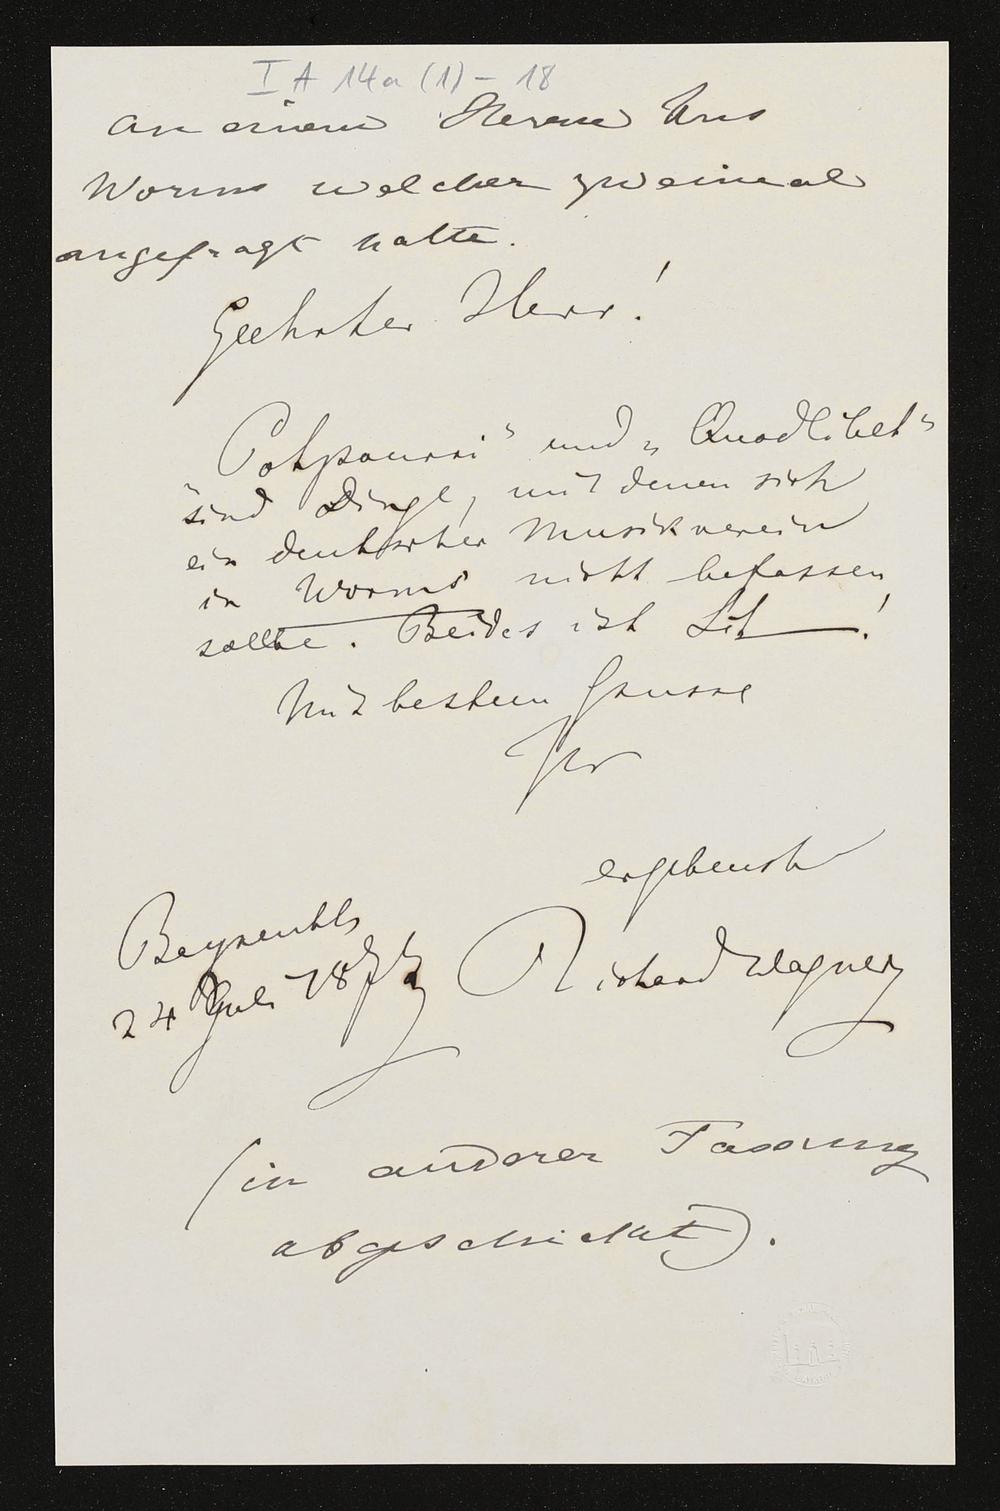 I A 14a (1) - 18
An einem Herrn aus
Worms welcher zweimal
angefragt hatte.
Geehrter Herr!
Potpourri" und „Quodlibet"
sind Dinge, mit denen sich
ein deutscher Musikverein
in Worms nicht befassen
sollte. Beides ist
Mit bestem Grusse
Ihr
ergebenst
Bayreuth
24 Juli 187
Richard Wagner
(in anderer Fassung
abgeschickt).